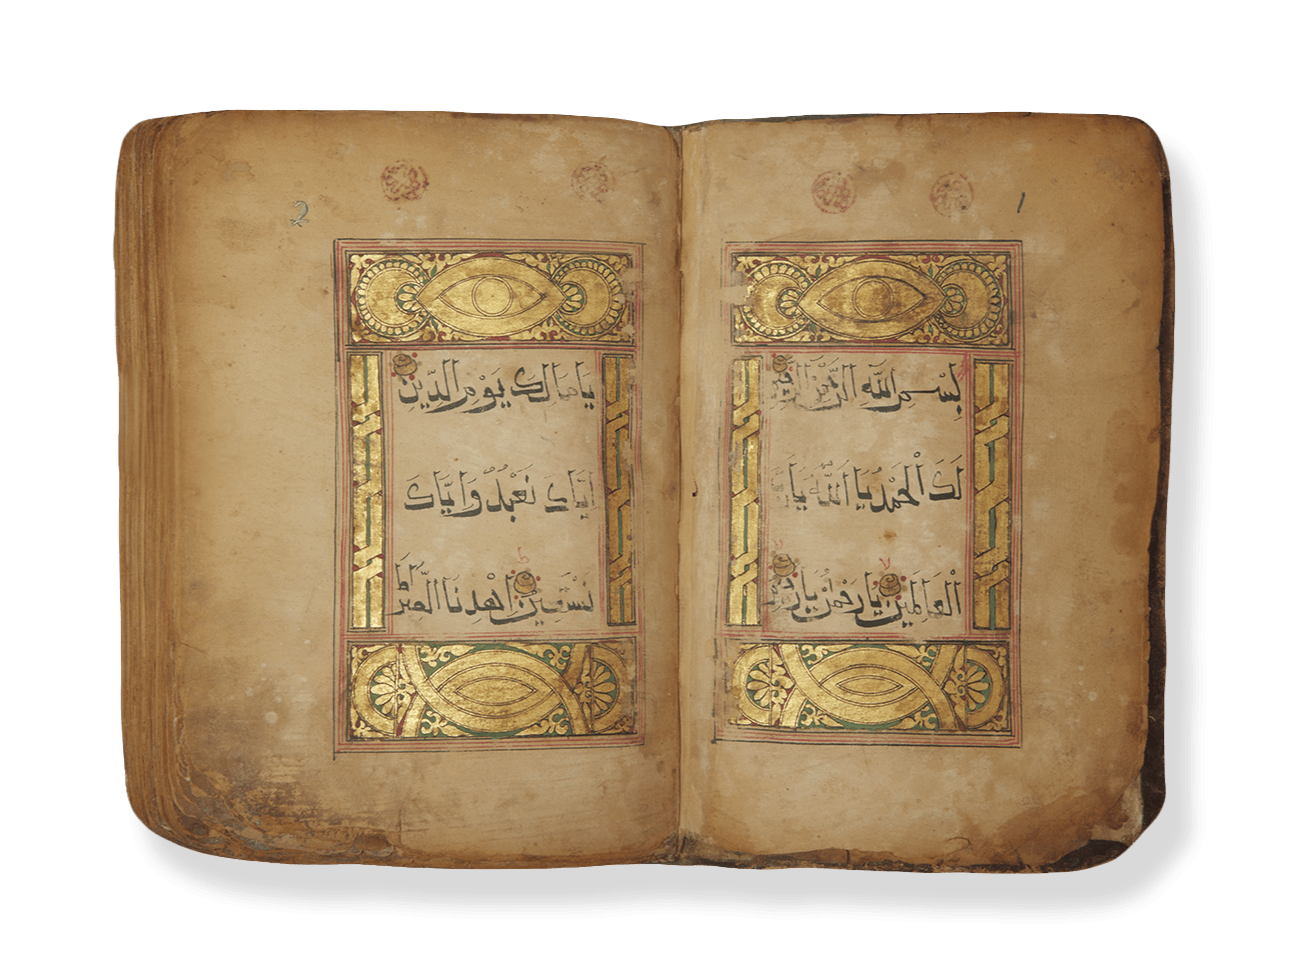 1
بِسْمِ اللَّهِ الرَّحْمَنِ الرَّحِيمِ
لَكَ الْحَمْدُ يَا اَللَّهُ يَارَبَّ
الْعَالَمِينَ يَارَحْمَنُ يَارَحِيمُ
2
يَامَالِكَ يَوْمِ الدِّينِ
اِيَّاكَ نَعْبُدُ وَاِيَّاكَ
نَسْتَعِينُ اِهْدِنَا الصِّرَاطَ